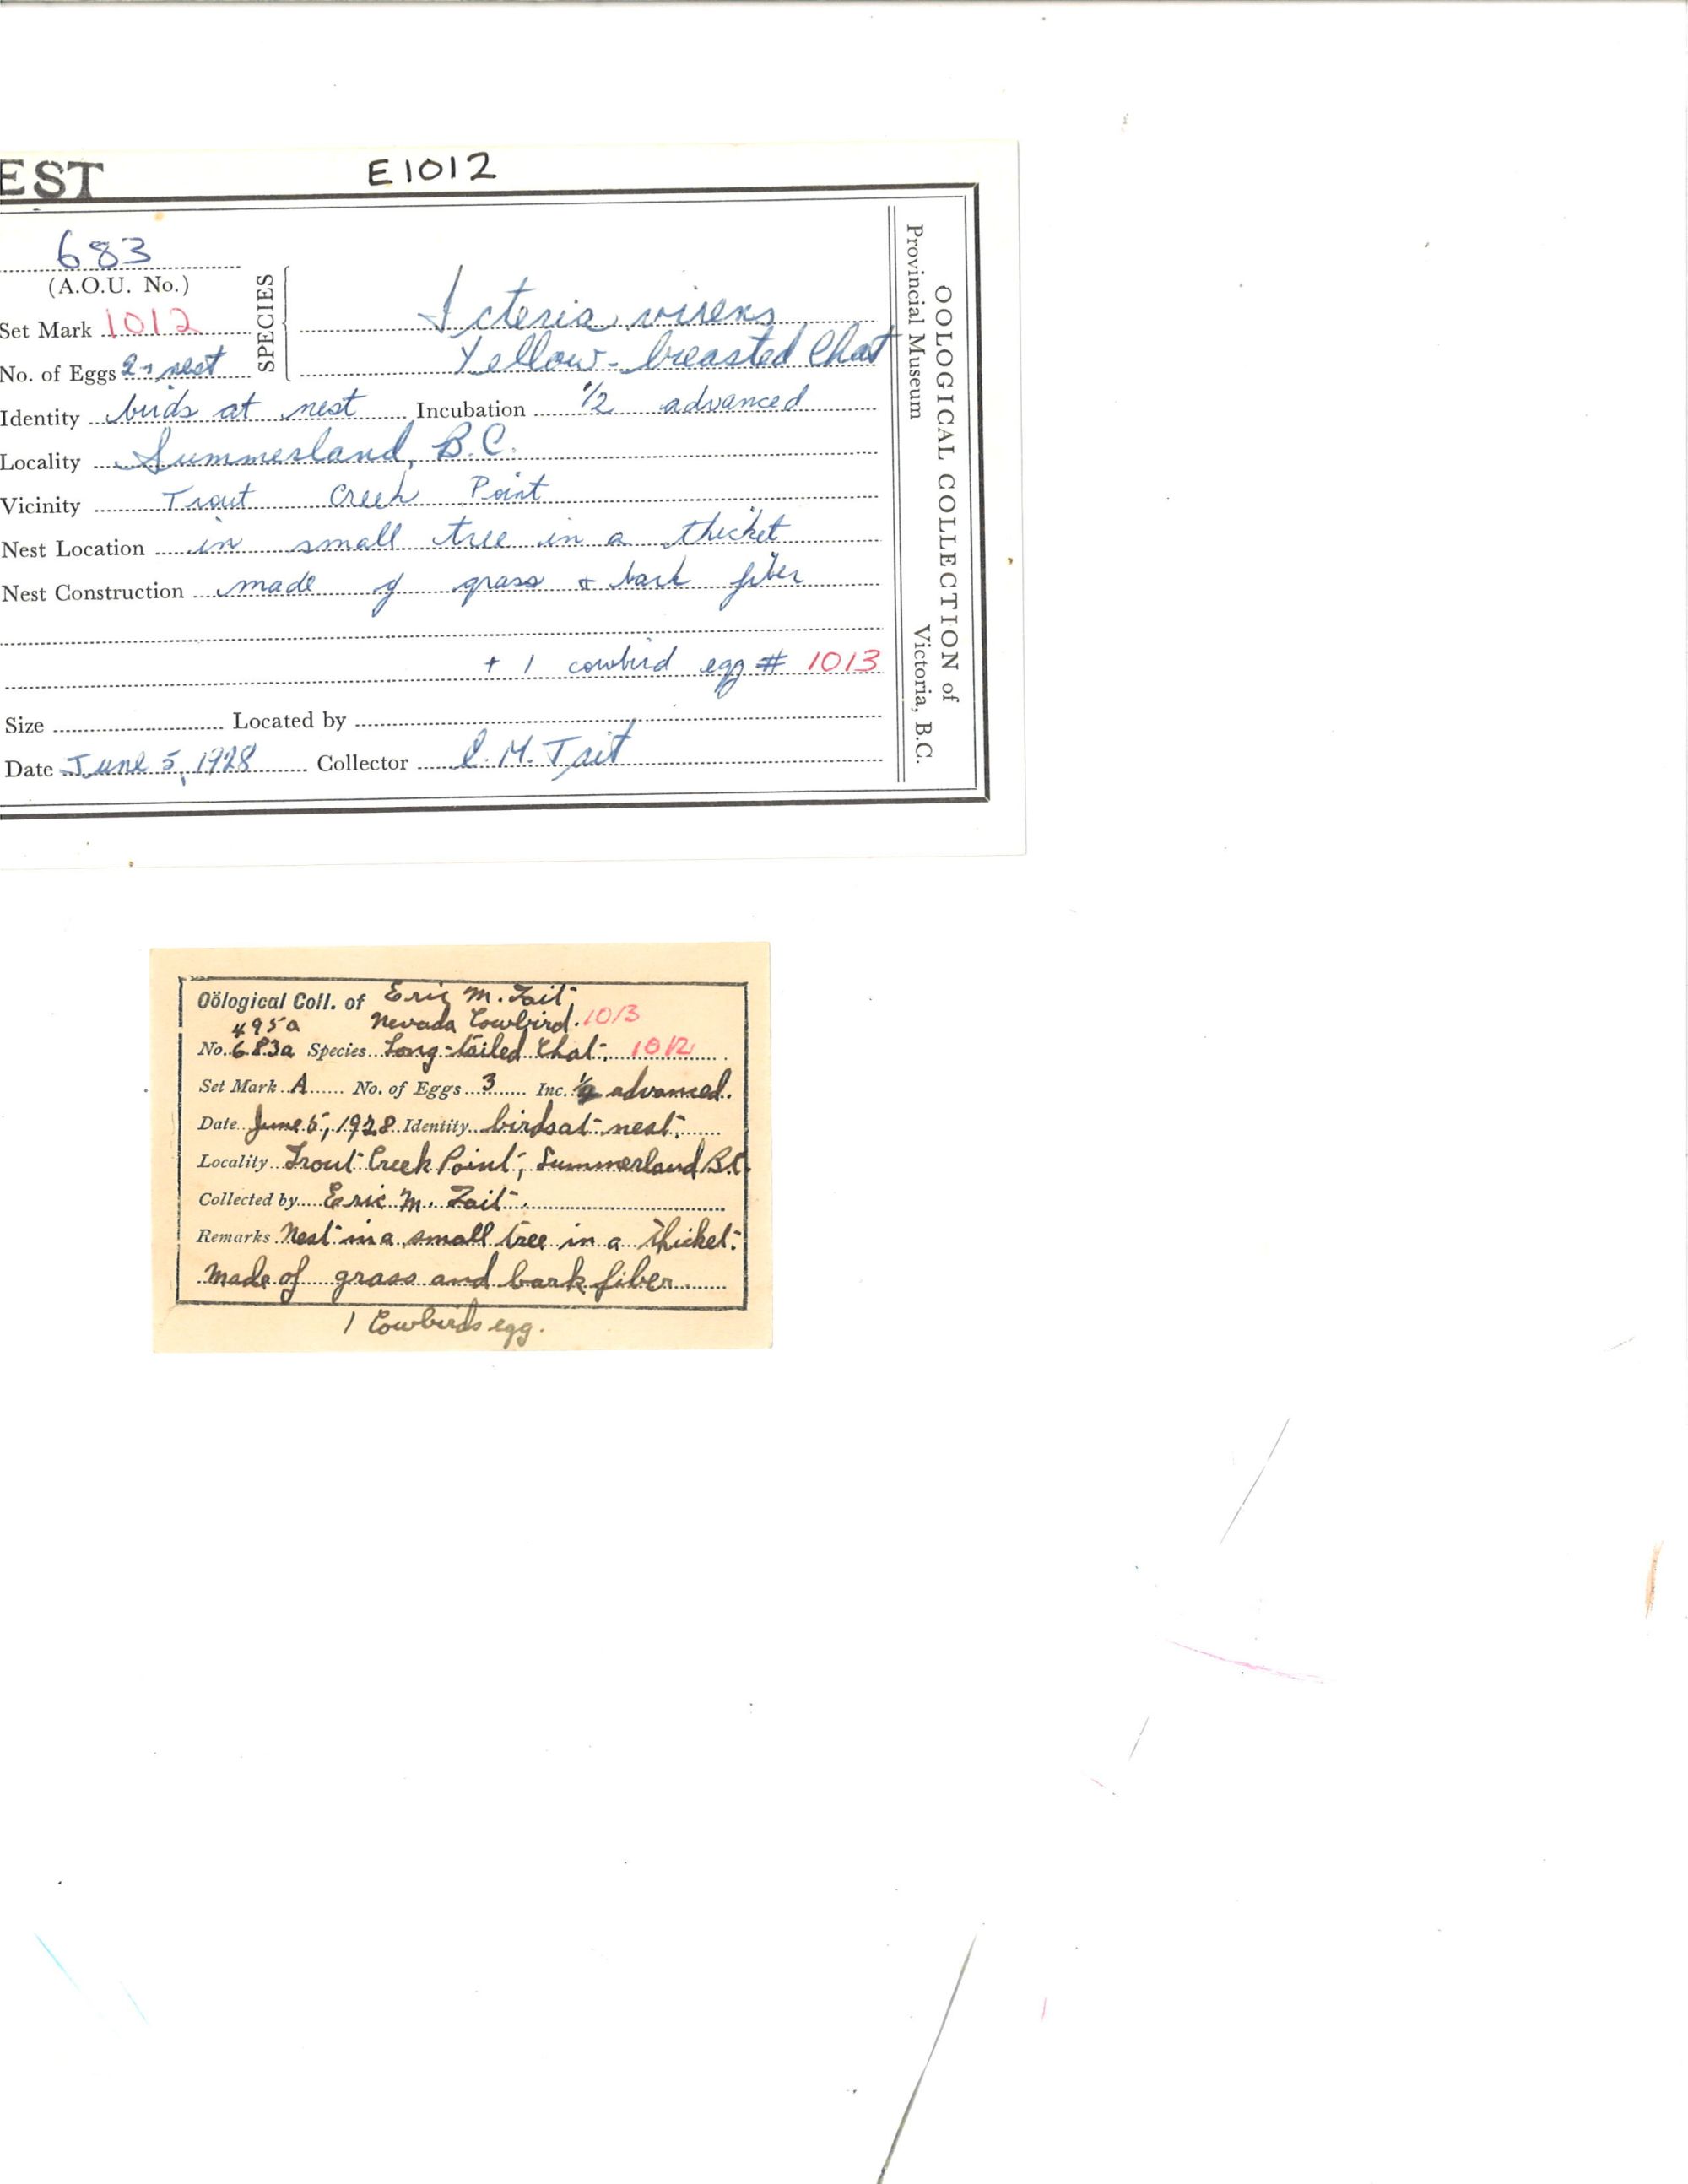 EST E1012
683
(A.O.U. No.)
Set Mark 1012
SPECIES
Icteria virens
Yellow-breasted Chat
No. of Eggs 2 + nest
Identity birds at nest Incubation 1/2 advanced
Locality Summerland, B.C.
Vicinity Trout Creek Point
Nest Location in small tree in a thicket
Nest Construction made of grass & bark fiber
+ 1 cowbird egg # 1013
Size Located by
Date June 5, 1928 Collector E. M. Tait
OOLOGICAL COLLECTION of
Provincial Museum Victoria, B.C.
Oölogical Coll. of Eric M. Tait
495a Nevada Cowbird. 1013
No. 683a Species Long-tailed Chat. 1012
Set Mark A No. of Eggs 3 Inc. 1/2 advanced.
Date June 5, 1928 Identity birds at nest.
Locality Trout Creek Point, Summerland B.C.
Collected by Eric M. Tait.
Remarks Nest in a small tree in a thicket.
Made of grass and bark fiber.
1 Cowbirds egg.